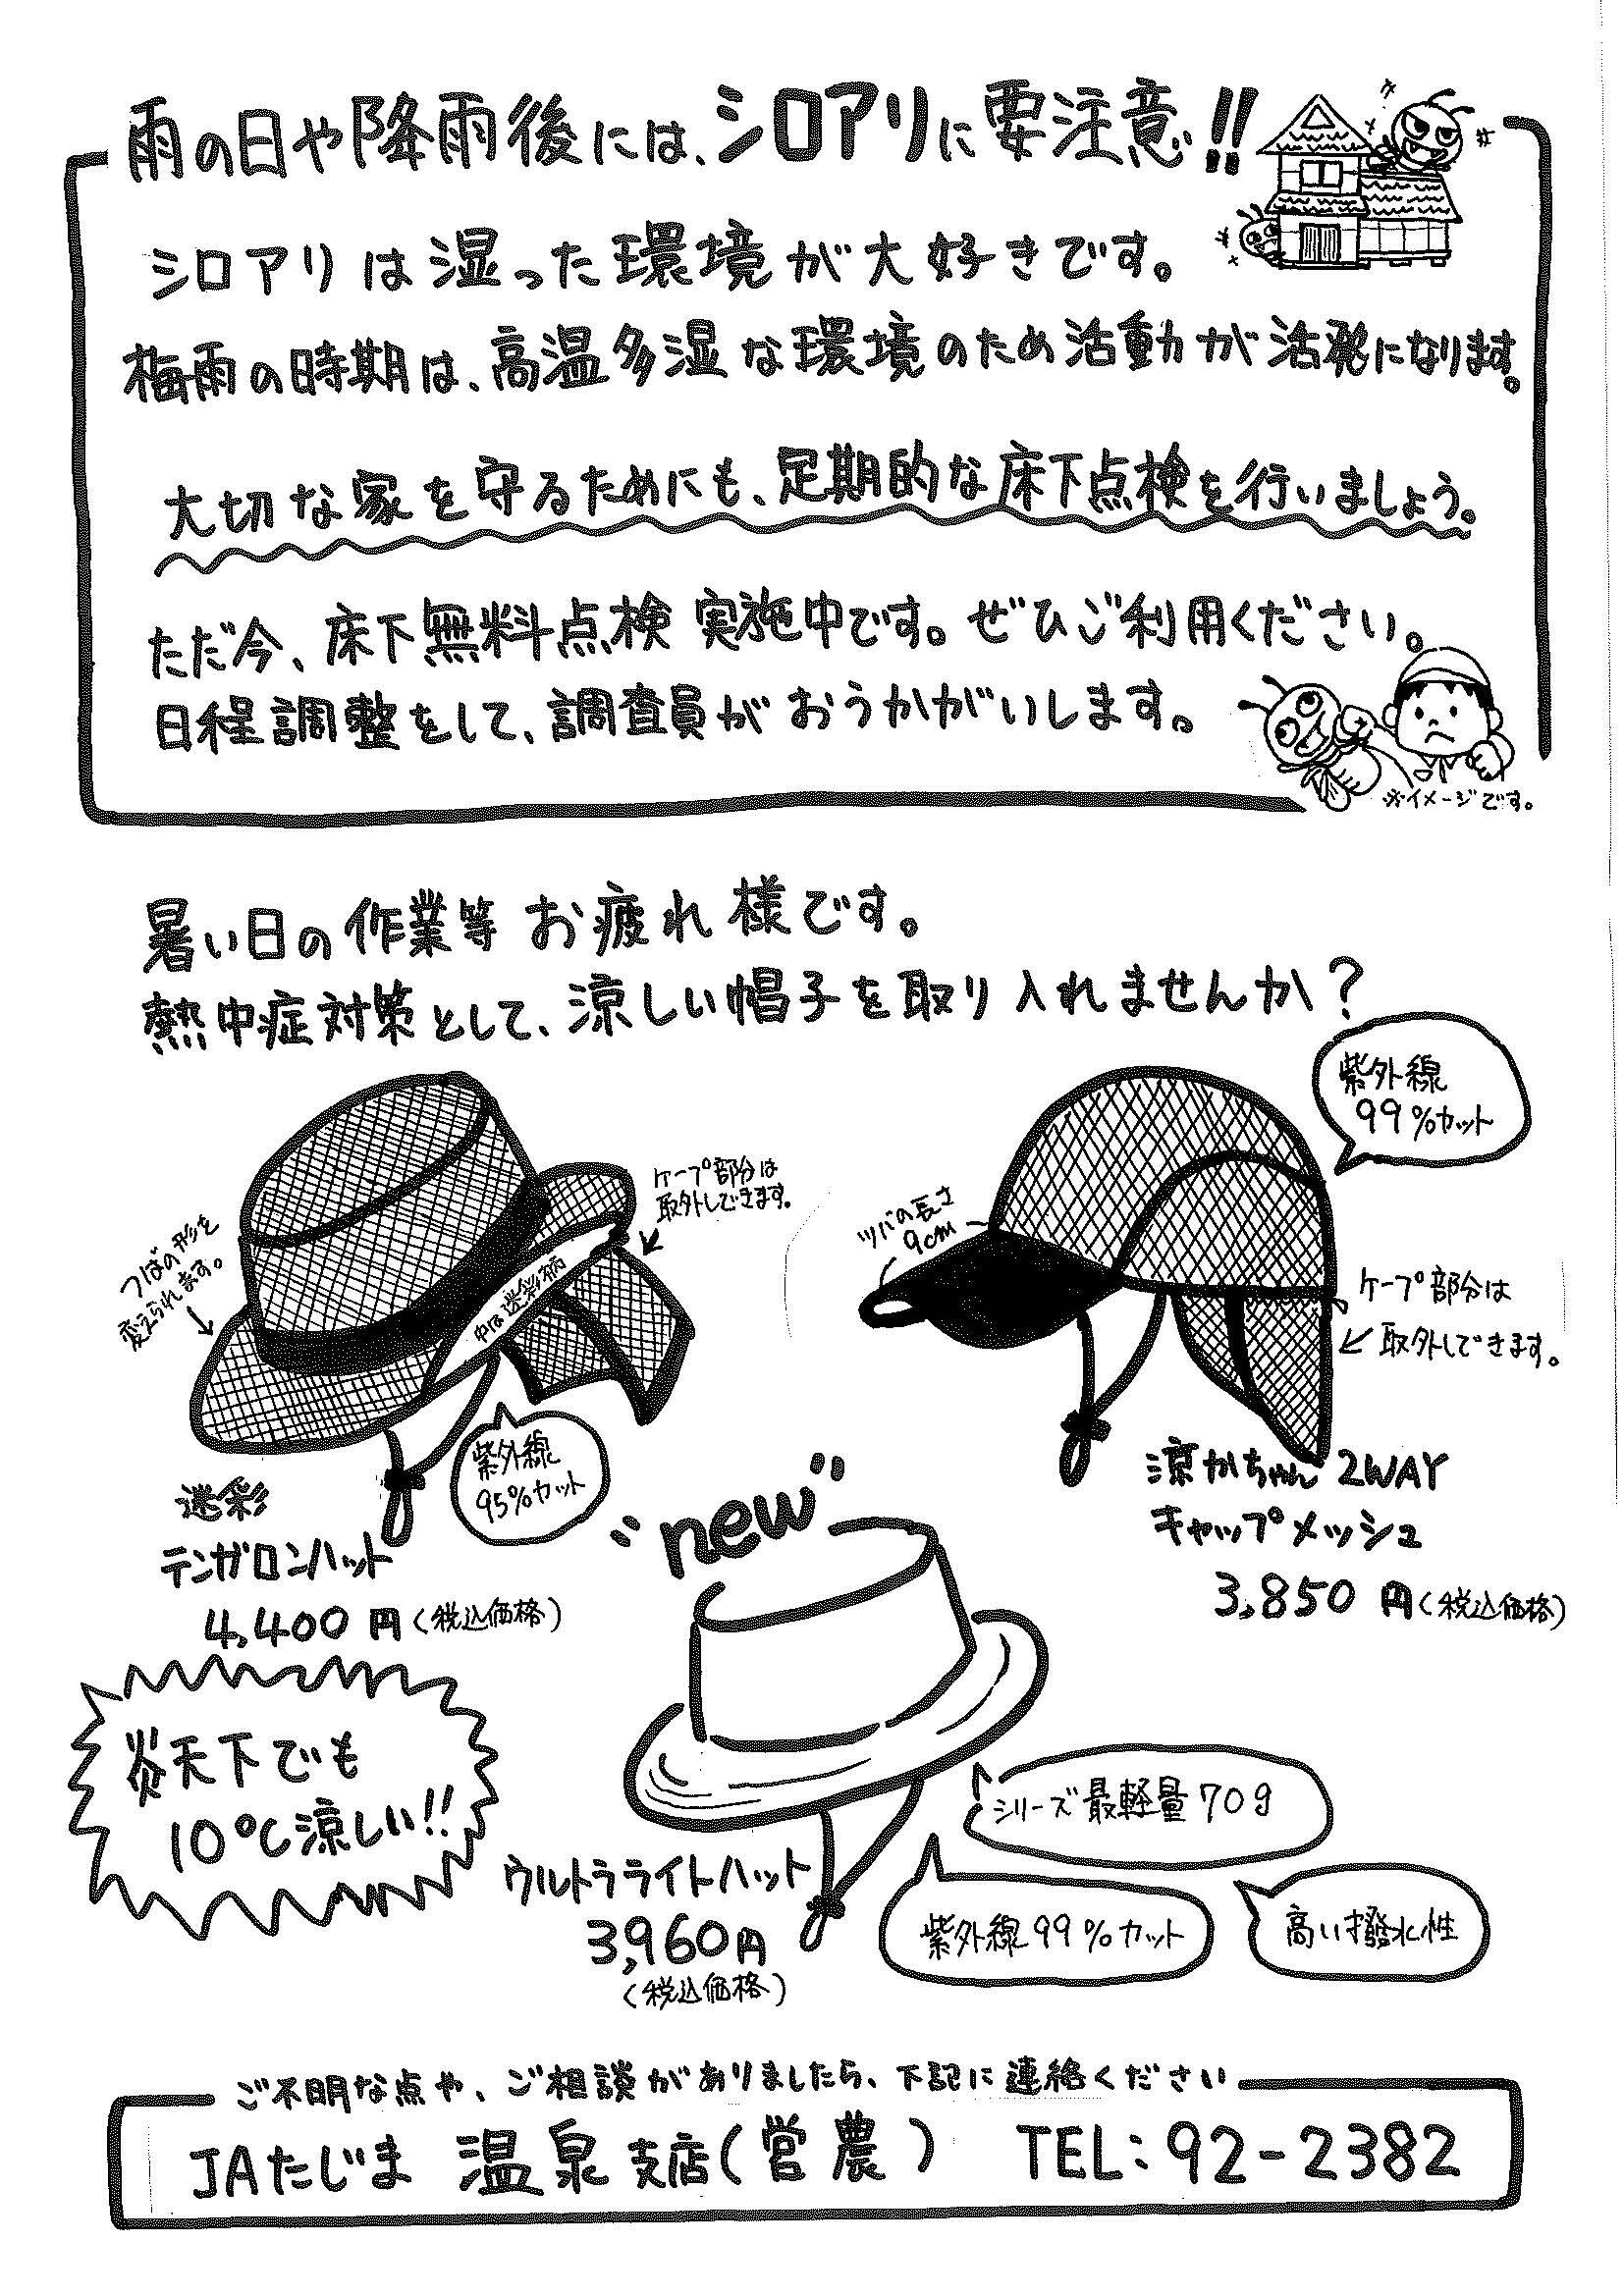 雨の日や降雨後には、シロアリに要注意!!
シロアリは湿った環境が大好きです。
梅雨の時期は、高温多湿な環境のため活動が活発になります。
大切な家を守るためにも、定期的な床下点検を行いましょう。
ただ今、床下無料点検実施中です。ぜひご利用ください。
日程調整をして、調査員がおうかがいします。
※イメージです。
暑い日の作業等お疲れ様です。
熱中症対策として、涼しい帽子を取り入れませんか?
紫外線
99%カット
ケープ部分は
取外しできます。
つばの形を
変えられます。
中は迷彩柄
紫外線
95%カット
迷彩
テンガロンハット
4,400円(税込価格)
ツバの長さ
9cm
ケープ部分は
取外しできます。
涼かちゃん 2WAY
キャップメッシュ
3,850円(税込価格)
new
炎天下でも
10℃涼しい!!
シリーズ最軽量70g
ウルトラライトハット
3,960円
(税込価格)
紫外線99%カット
高い撥水性
ご不明な点や、ご相談がありましたら、下記に連絡ください
JAたじま 温泉支店(営農) TEL:92-2382